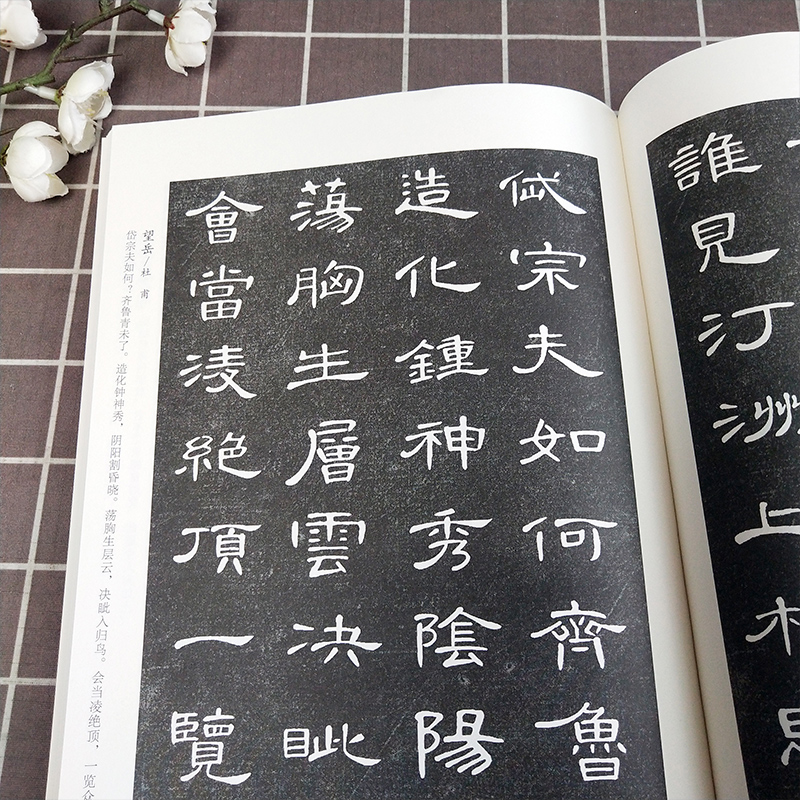 誰見汀洲上相思
岱宗夫如何齊魯
造化鍾神秀陰陽
蕩胸生層雲決眦
會當淩絶頂一覽
望岳/杜 甫
岱宗夫如何？齐鲁青未了。造化钟神秀，阴阳割昏晓。荡胸生层云，决眦入归鸟。会当凌绝顶，一览众